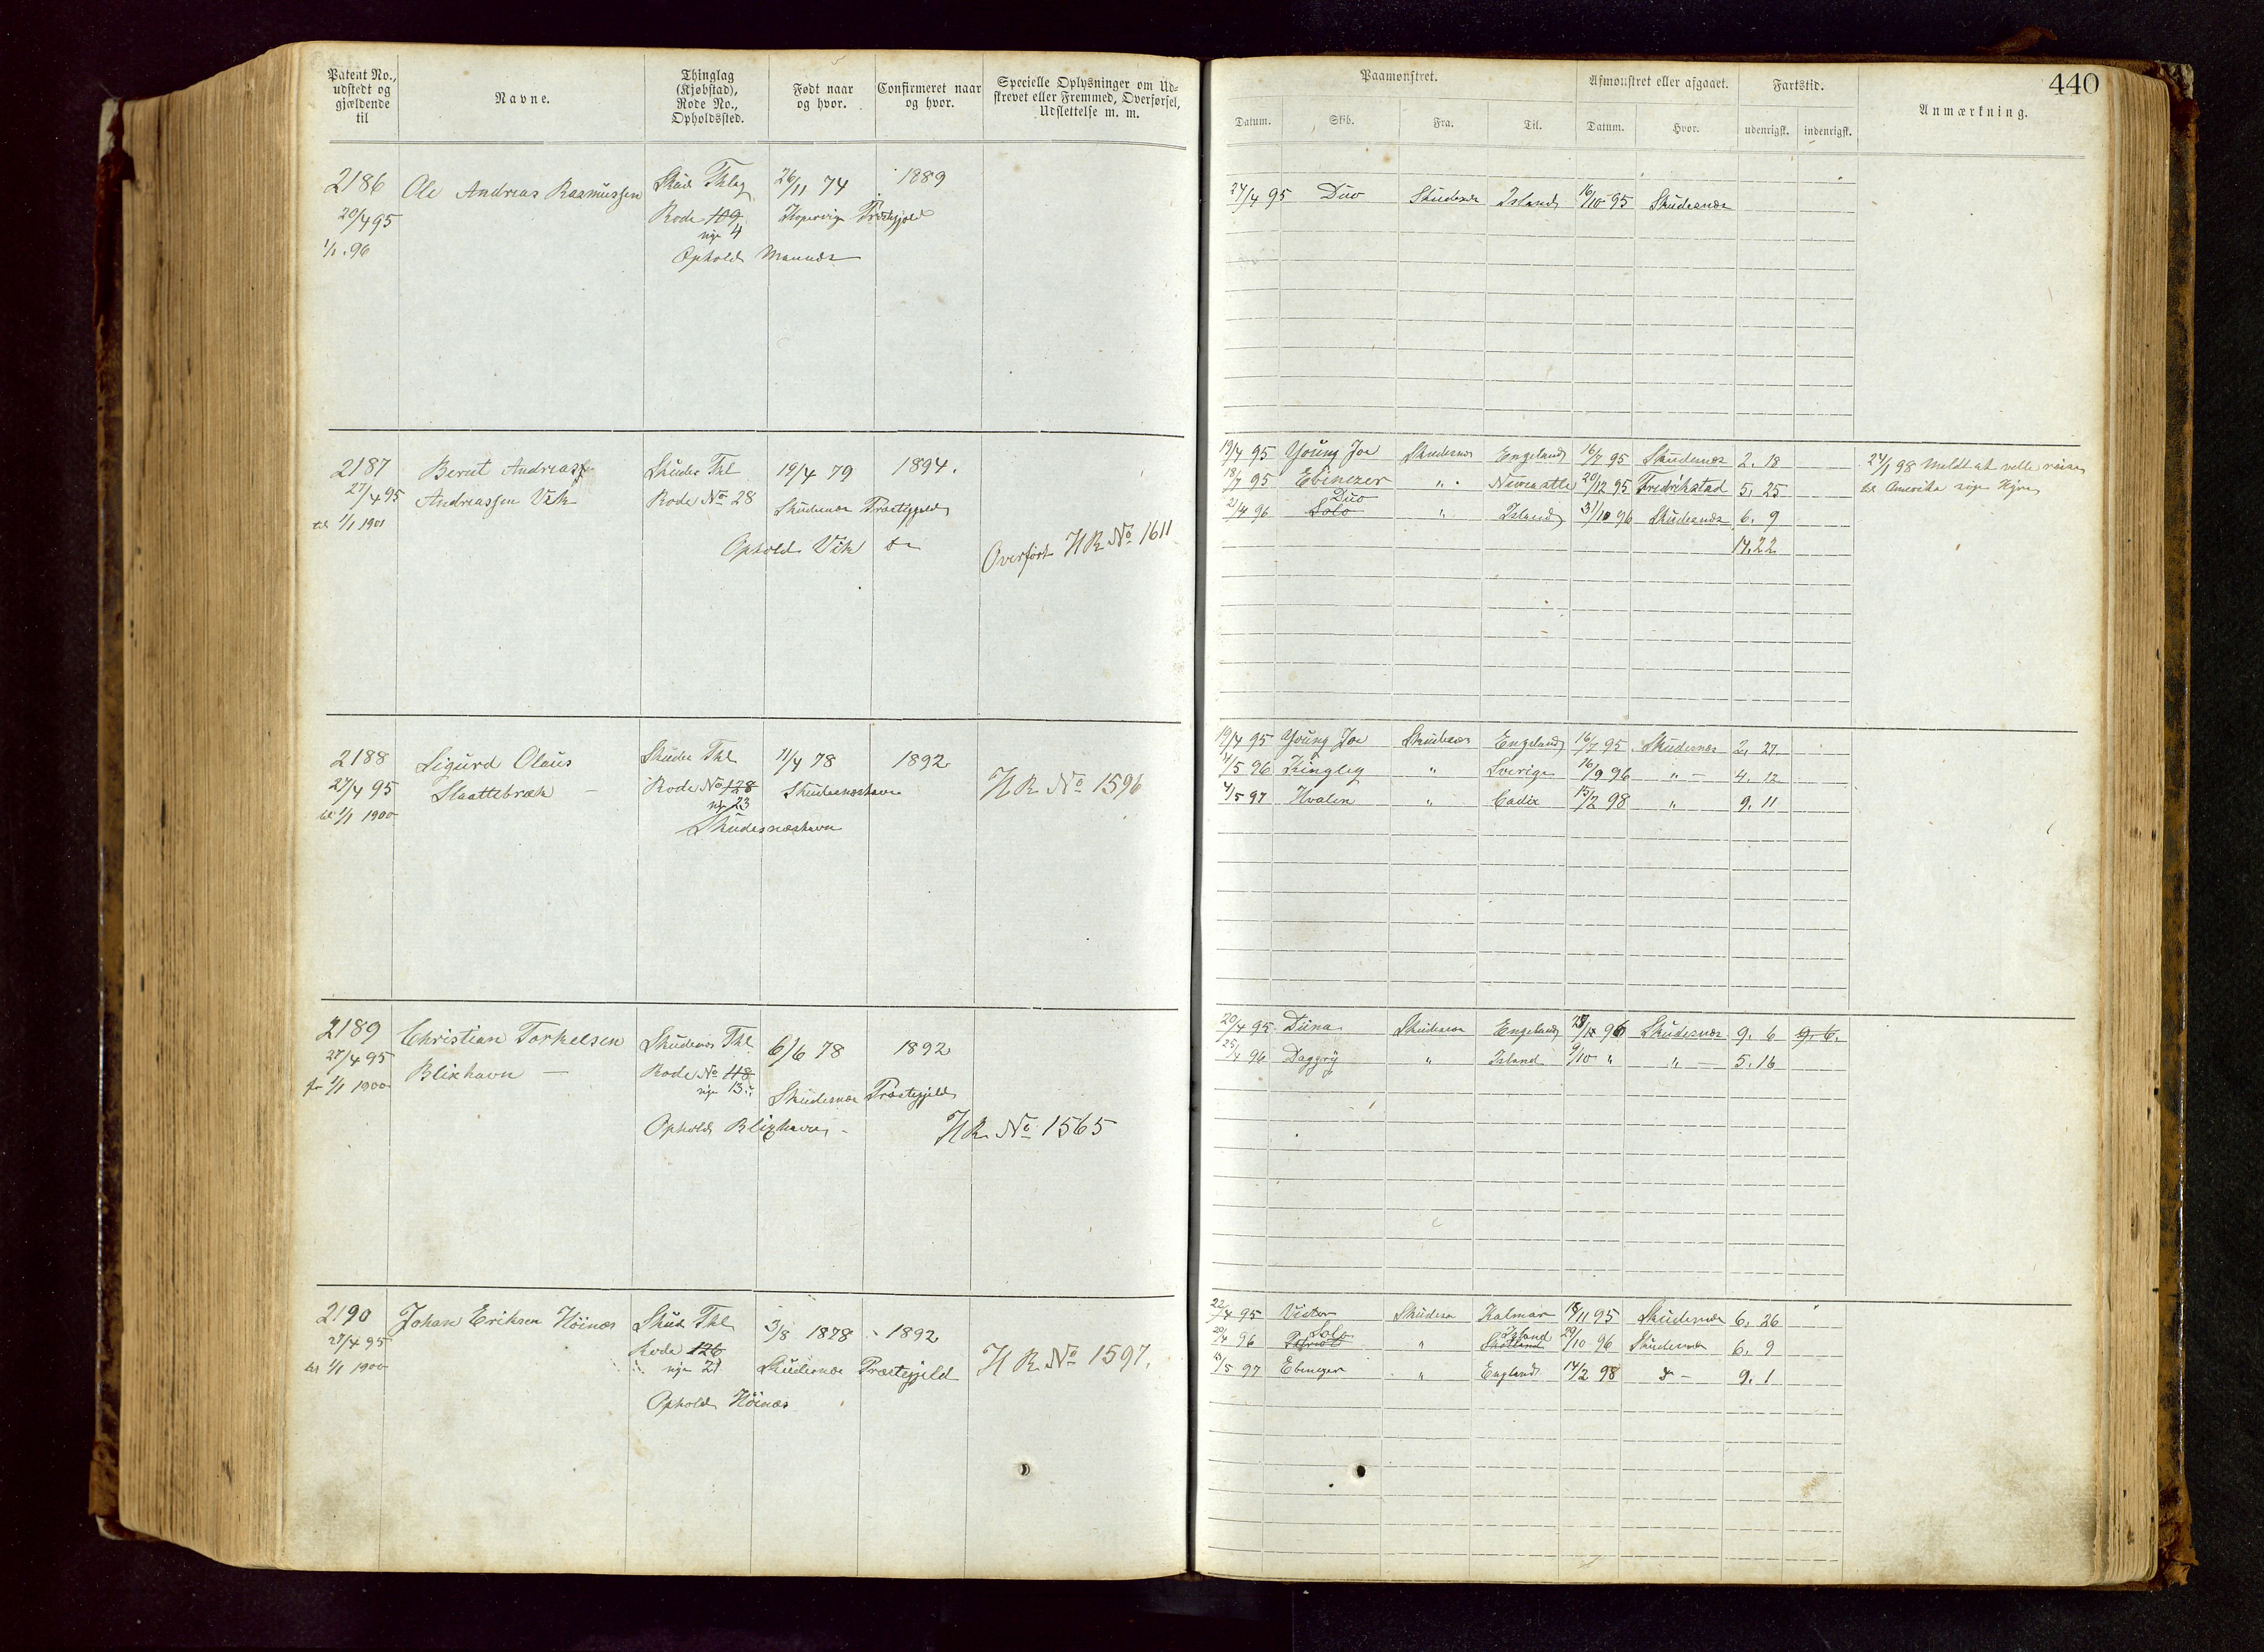 Patent No.,
udstedt og
gjældende
til
Navne.
Thinglag
(Kjøbstad),
Rode No.,
Opholdssted.
Født naar
og hvor.
Confirmeret naar
og hvor.
Specielle Oplysninger om Ud-
skrevet eller Fremmed, Overførsel,
Udslettelse m. m.
2186 Ole Andreas Rasmussen Skud Thlag 26/11 74 1889
20/4 95 Rode 119 Kopervig Præstegjeld
nye 4
1/1 . 96 Ophold Munnes
2187 Berut Andreas Skudes Thl 19/4 79 1894.
27/4 95 Andreassen Vik Rode No 28 Skudenæs Præstegjeld
til 1/1 1901
Ophold Vik Overført H R No 1611
2188 Sigurd Olaus Skudes Thl 11/4 78 1892
27/4 95 Slaattebræk Rode No 128 Skudesneshavn H R No 1596
nye 23
til 1/1 1900 Skudesnæshavn
2189 Christian Torkelsen Skudenes Thl 6/6 78 1892
27/4 95 Blixhavn Rode No 118
nye 13
1/1 1900 Skudesnæs Præstegjeld
Ophold Blixhavn H R No 1565
2190 Johan Eriksen Höinæs Skud Thl 3/8 1878 1892
27/4 95 Rode 126
til 1/1 1900 nye 21 Skudesnæs Præstegjeld H R No 1597.
Ophold Höinæs
440
Paamønstret.
Afmønstret eller afgaaet.
Fartstid.
Anmærkning.
Datum. Skib. Fra. Til. Datum. Hvor. udenrigsk. indenrigsk.
24/4 95 Duo Skudesnæs Island 16/10 95 Skudesnæs
19/4 95 Young Joe Skudesnæs Engeland 16/7 95 Skudenæs 2. 18
24/1 98 Meldt at ville reise
18/7 95 Ebenezer " Newcastle 20/12 95 Fredrikstad 5. 25
til Amerika søge Hyre
Duo
21/4 96 Solo " Island 31/10 96 Skudesnæs 6. 9
14.22
19/4 95 Young Joe Skudesnæs Engeland 16/7 95 Skudesnæs 2. 27
4/5 96 Kingley " Sverige 16/9 96 " 4. 12
4/5 97 Hvalen " Cadix 15/2 98 " 9. 11
20/4 95 Duna Skudesnæs Engeland 96 Skudesnæs 9. 6 9. 6.
25/4 96 Daggry " Island 9/10 " " 5. 16
22/4 95 Victor Skudesn Kalmar 18/11 95 Skudesnæs 6. 26
Solo Island
20/4 96 " Skotland 29/10 96 Skudesnæs 6. 9
13/5 97 Ebenezer " England 14/2 98 9. 1